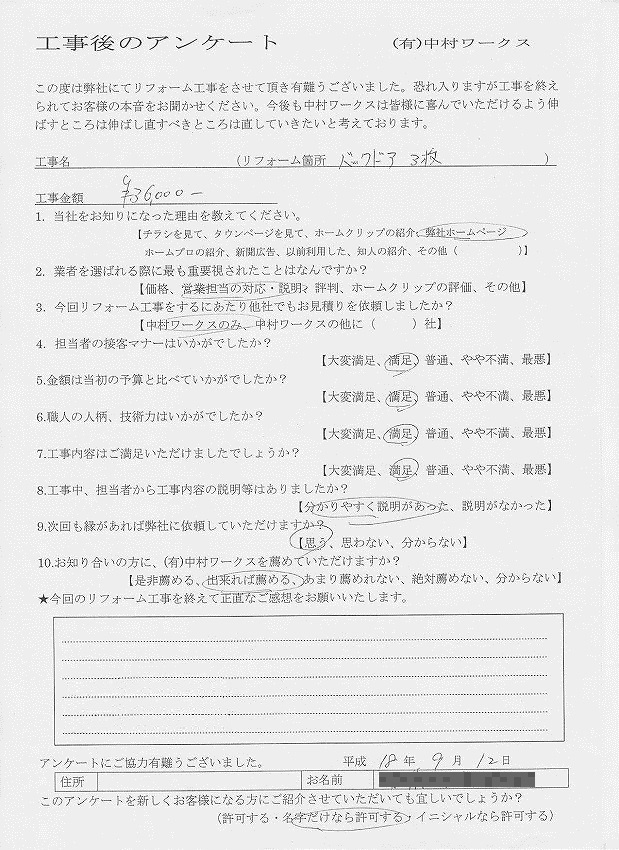 工事後のアンケート (有)中村ワークス
この度は弊社にてリフォーム工事をさせて頂き有難うございました。恐れ入りますが工事を終え
られてお客様の本音をお聞かせください。今後も中村ワークスは皆様に喜んでいただけるよう伸
ばすところは伸ばし直すべきところは直していきたいと考えております。
工事名 (リフォーム箇所 バックドア 3枚 )
工事金額 ¥36,000-
1. 当社をお知りになった理由を教えてください。
【チラシを見て、タウンページを見て、ホームクリップの紹介、弊社ホームページ
ホームプロの紹介、新聞広告、以前利用した、知人の紹介、その他( )】
2. 業者を選ばれる際に最も重要視されたことはなんですか?
【価格、営業担当の対応・説明、評判、ホームクリップの評価、その他】
3. 今回リフォーム工事をするにあたり他社でもお見積りを依頼しましたか?
【中村ワークスのみ、中村ワークスの他に( )社】
4. 担当者の接客マナーはいかがでしたか?
【大変満足、満足、普通、やや不満、最悪】
5.金額は当初の予算と比べていかがでしたか?
【大変満足、満足、普通、やや不満、最悪】
6.職人の人柄、技術力はいかがでしたか?
【大変満足、満足、普通、やや不満、最悪】
7.工事内容はご満足いただけましたでしょうか?
【大変満足、満足、普通、やや不満、最悪】
8.工事中、担当者から工事内容の説明等はありましたか?
【分かりやすく説明があった、説明がなかった】
9.次回も縁があれば弊社に依頼していただけますか?
【思う、思わない、分からない】
10.お知り合いの方に、(有)中村ワークスを薦めていただけますか?
【是非薦める、出来れば薦める、あまり薦めれない、絶対薦めない、分からない】
★今回のリフォーム工事を終えて正直なご感想をお願いいたします。
アンケートにご協力有難うございました。 平成 18年 9月 12日
住所 お名前
このアンケートを新しくお客様になる方にご紹介させていただいても宜しいでしょうか?
(許可する・名字だけなら許可する・イニシャルなら許可する)